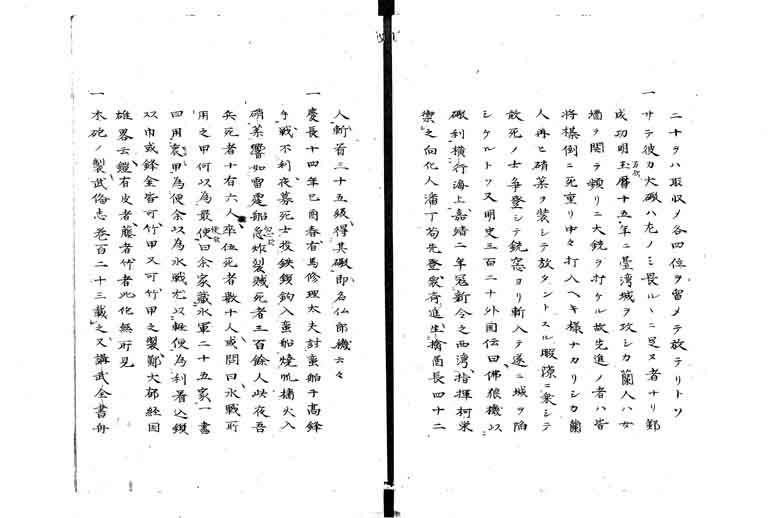 二十ヲハ取収メ各四位ヲ留メテ放テリトソ
一 サテ彼カ大礟ハ尤ノミ畏ルヽニ足ヌ者ナリ鄭
成功明玉暦十五年ニ臺湾城ヲ攻シカ蘭人ハ女
万歟
墻ヲ閉テ頻リニ大銃ヲ打ケル故先進ノ者ハ皆
将棋倒ニ死重リ中々打入ヘキ様ナカリシカ蘭
人再ヒ硝薬ヲ装シテ放タントスル暇隙ニ衆シテ
敢死ノ士争登シテ銃窓ヨリ斬入テ遂ニ城ヲ陥
シケルトソ又明史三百二十外国伝曰佛狼機以
礟利横行海上嘉靖二年寇新今之西湾指揮柯榮
禦之向化人潘丁苟先登衆斉進生擒酋長四十二
人斬首三十五級得其礟即名仏郎機云々
一 慶長十四年己酉春有馬修理太夫討蛮舶于高鋒
争戦不利夜募死士投鉄鎖鈎入蛮船燒帆檣火入
硝薬響如雷霆船忽炸裂賊死者三百餘人此夜吾
兵死者十有六人卒伍死者数十人或問曰水戦所
用之甲何以為最便曰余家蔵水軍二十五家一書
便歟
四用裹甲為便余以為水戦尤以軽便為利着込鎖
以巾或鋒金皆可竹甲又可竹甲之製鄭大郁経国
雄畧云鎧有皮者藤者竹者此化無所見
一 木砲ノ製武備志巻百二十三載之又講武全書舟